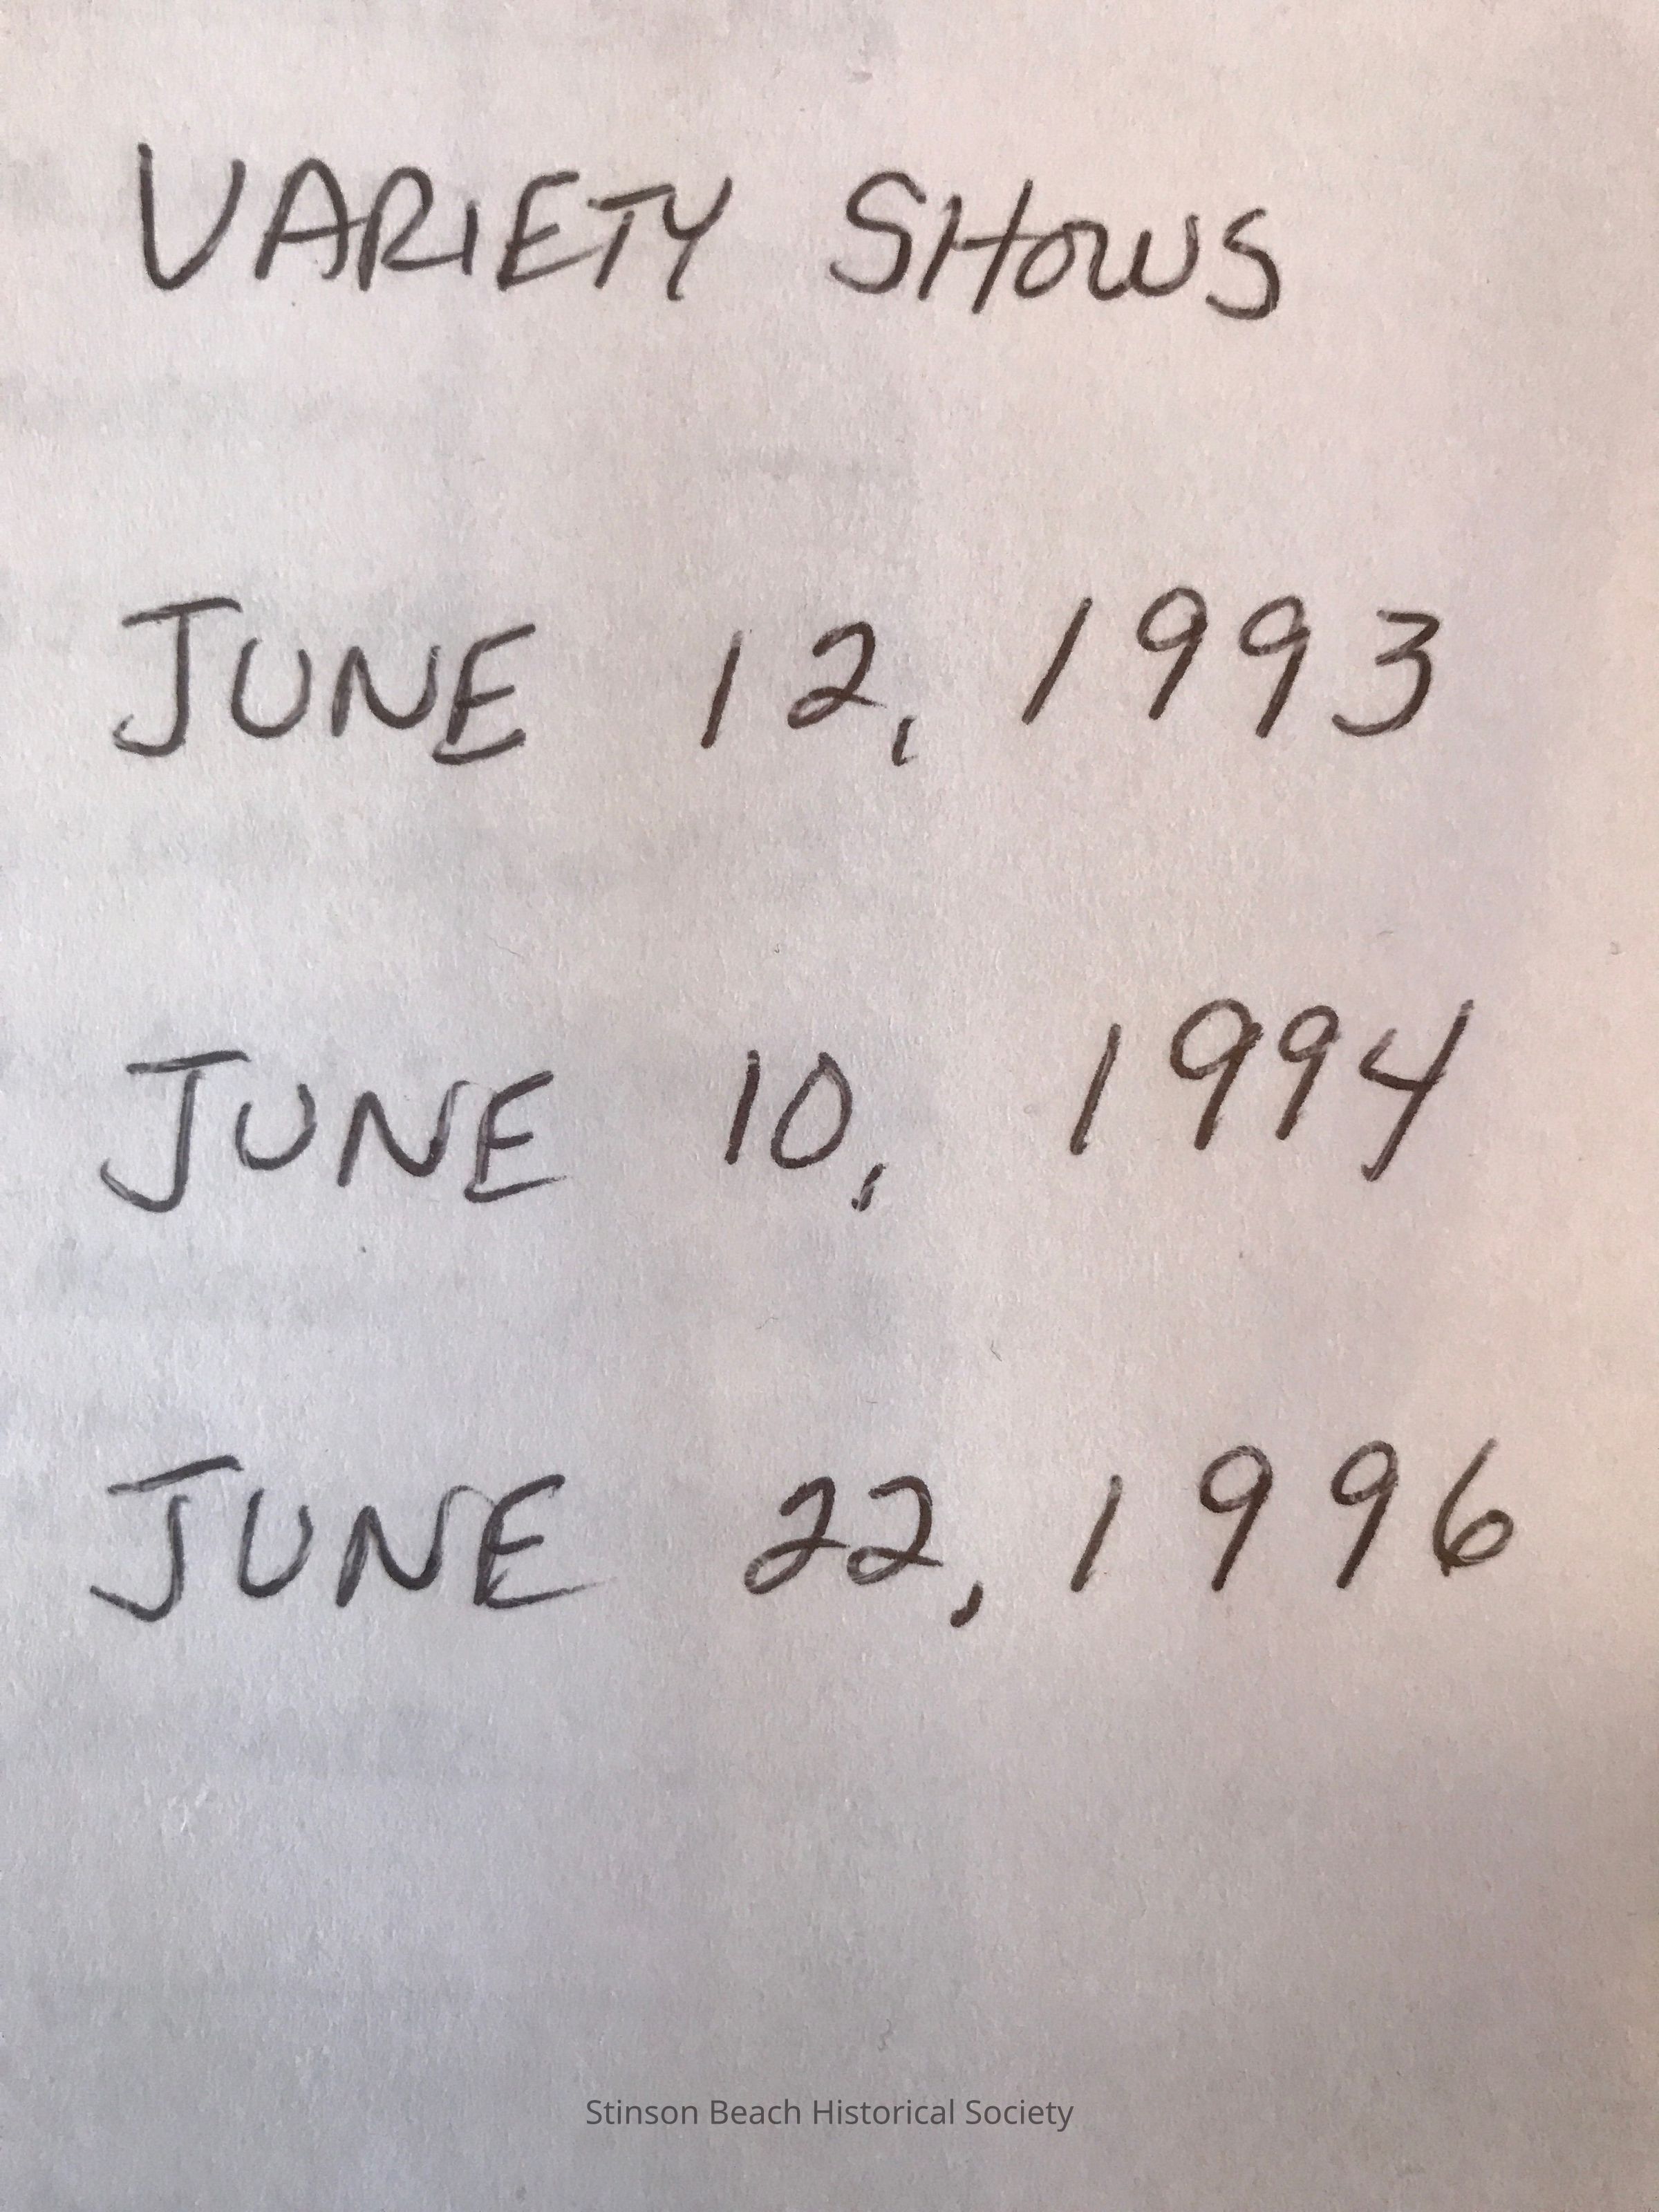 VARIETY SHOWS
JUNE 12, 1993
JUNE 10, 1994
JUNE 22, 1996
Stinson Beach Historical Society